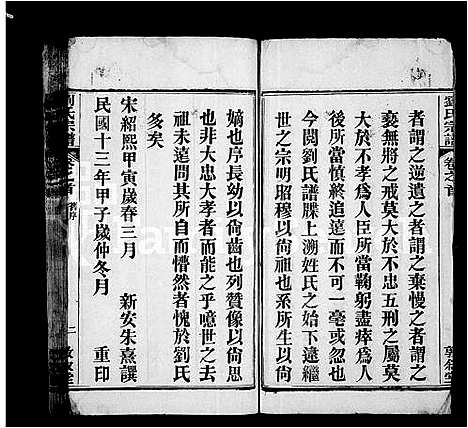 劉氏宗譜 卷之首
者謂之逆遺之者謂之棄慢之者謂之
褻無將之戒莫大於不忠五刑之屬莫
大於不孝爲人臣所當鞠躬盡瘁爲人
後所當慎終追遠而不可一毫或忽也
今閱劉氏譜牒上溯姓氏之始下遠繼
世之宗明昭穆以尚祖也系所生以尚
嫡也序長幼以尚齒也列贊像以尚思
也非大忠大孝者而能之乎噫世之去
祖未遠問其所自而懵然者愧於劉氏
多矣
宋紹熙甲寅歲春三月 新安朱熹譔
民國十三年甲子歲仲冬月 重印
劉氏宗譜 卷之首 舊序 二 敦敘堂